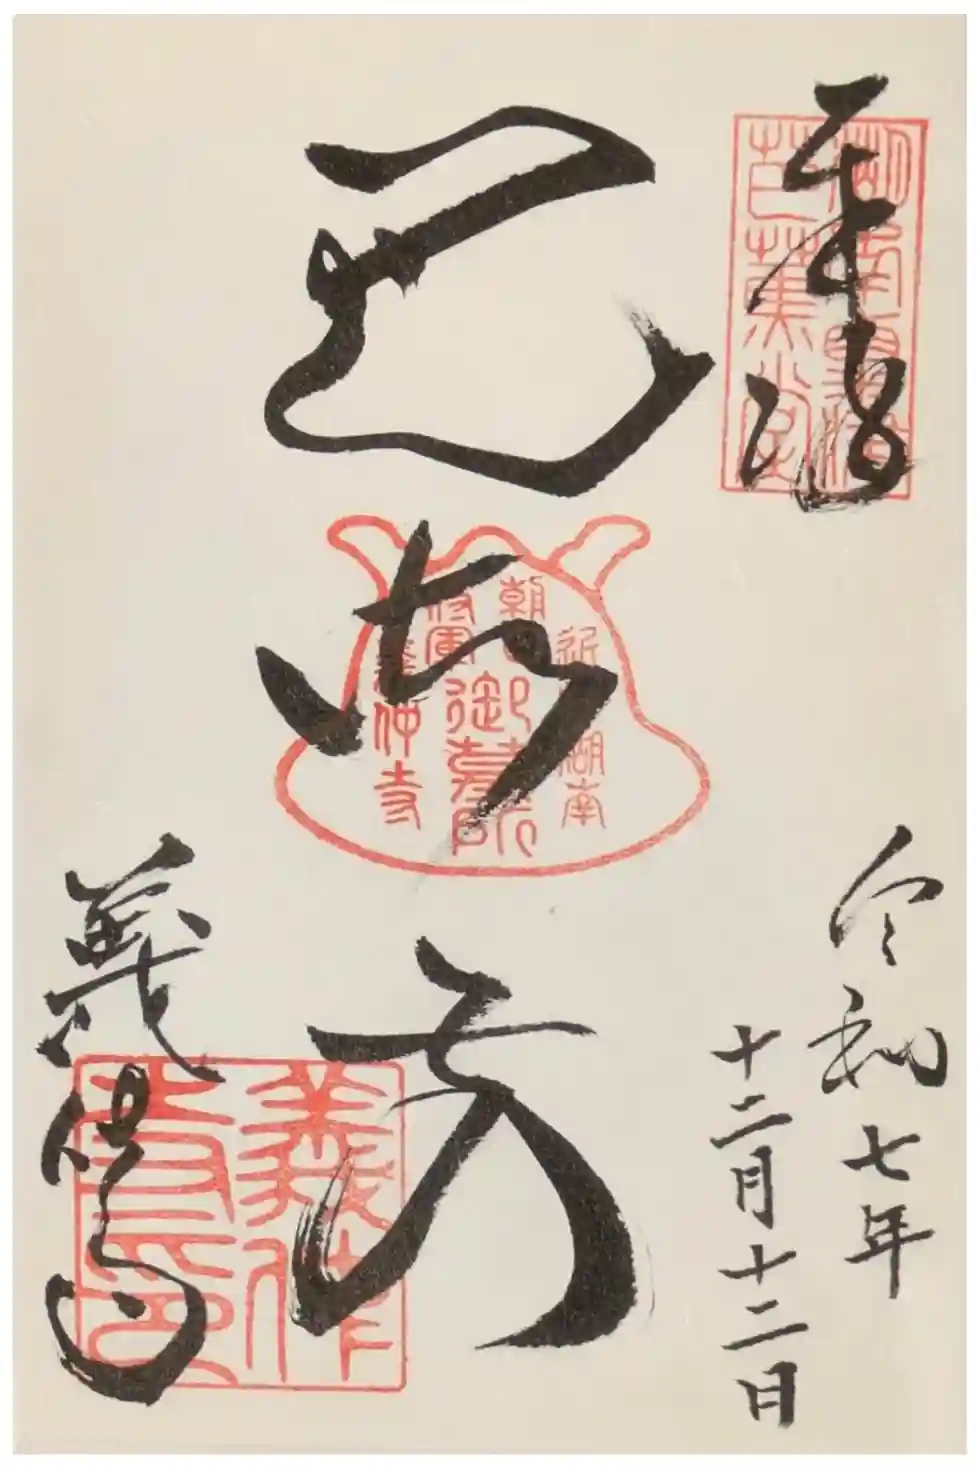 奉詣
芭蕉堂
巴御前
朝日
将軍
御墓所
湖南
義仲寺
令和七年
十二月十二日
義仲寺
義仲
寺印